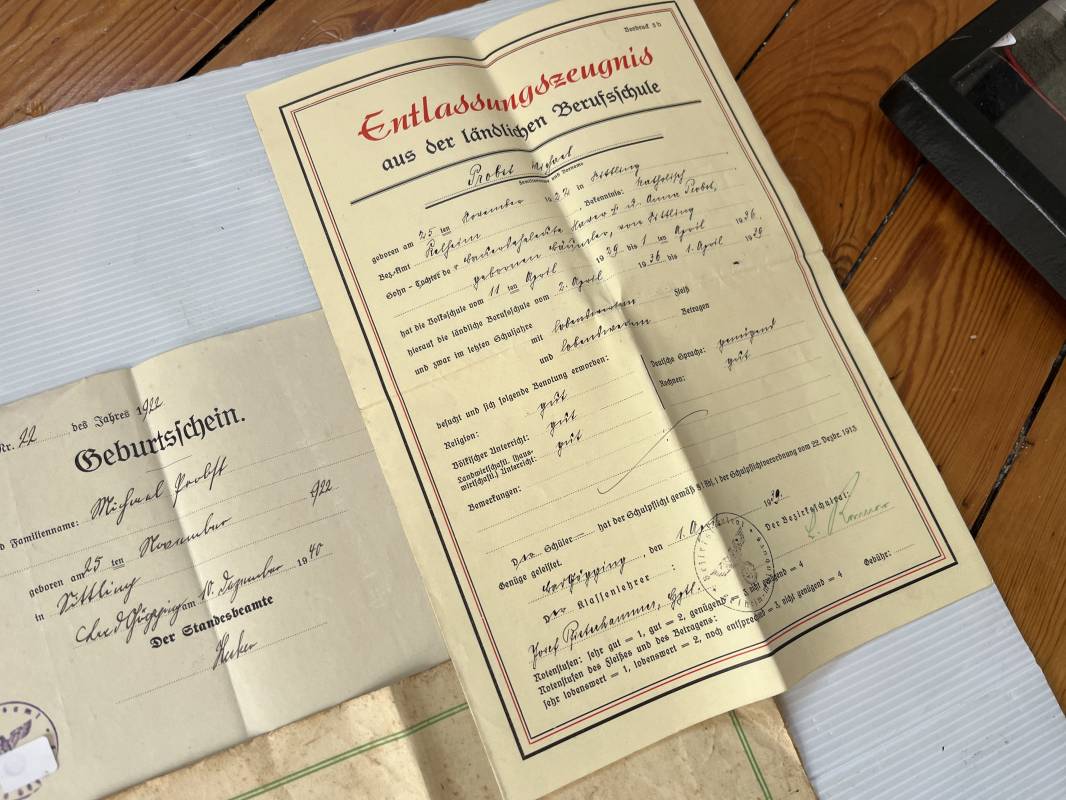 Vordruck 3b
Entlassungszeugnis
aus der ländlichen Berufsschule
Probst Michael
Familienname und Vorname
geboren am 25 ten November 1922 in Sittling
Bez.-Amt Kelheim, Bekenntnis: Katholisch
Sohn - Tochter der Bauerseheleute Xaver u. Anna Probst,
geborenen, von Sittling
hat die Volksschule vom 11 ten April 1929 bis 1 ten April 1936,
hierauf die ländliche Berufsschule vom 2. April 1936 bis 1. April 1939
und zwar im letzten Schuljahre
mit lobenswertem Fleiß
und lobenswertem Betragen
besucht und sich folgende Benotung erworben:
Religion: gut
Deutsche Sprache: genügend
Völkischer Unterricht: gut
Rechnen: gut
Landwirtschaftl. (haus-
wirtschaftl.) Unterricht: gut
Bemerkungen:
Der Schüler hat der Schulpflicht gemäß § 1 Abs. 1 der Schulpflichtverordnung vom 22. Dezbr. 1913
Genüge geleistet.
den 1. April 1939.
Der Klassenlehrer :
Der Bezirksschulrat:
Josef
Gebühr:
Notenstufen: sehr gut = 1, gut = 2, genügend = 3, nicht genügend = 4
Notenstufen des Fleißes und des Betragens:
sehr lobenswert = 1, lobenswert = 2, noch entsprechend = 3, nicht genügend = 4
Nr. 22 des Jahres 1922
Geburtsschein.
d Familienname: Michael Probst
geboren am 25 ten November 1922
in Sittling
am 10. Dezember 1940
Der Standesbeamte